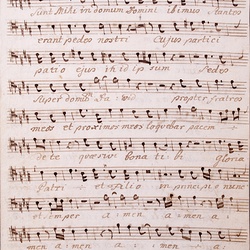 sunt Mihi in domum Domini ibimus stantes
erant pedes nostri Cujus partici
patio ejus in id ip sum Pedes
Super domū Da vid propter fratres
meos et proximos meos loquebar pacem +
de te quæsivi bona ti bi gloria
Patri + et Filio in principio nunc
et semper a men a men a
men amen a men a